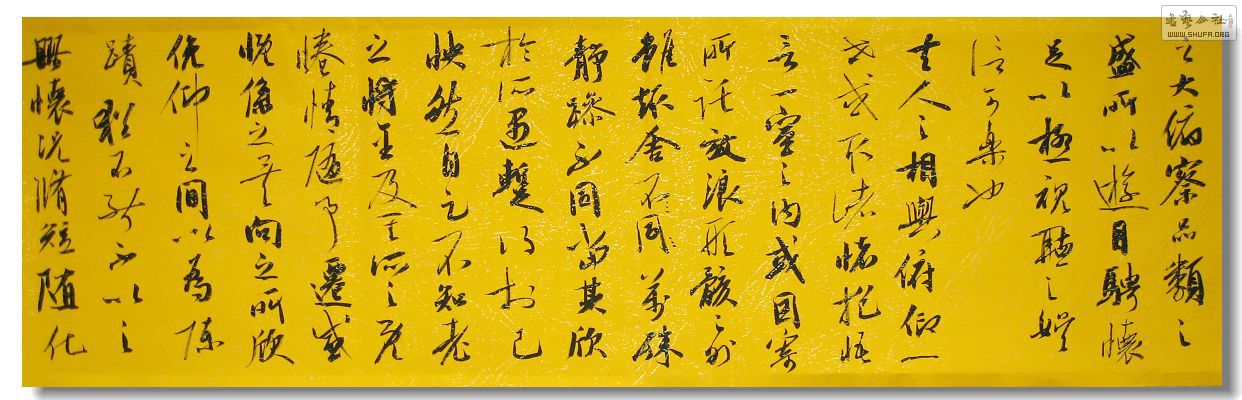 之大俯察品類之
盛所以遊目騁懷
足以極視聽之娛
信可樂也
夫人之相與俯仰一
世或取諸懷抱悟
言一室之內或因寄
所託放浪形骸之外
雖趣舍不同萬殊
靜躁不同當其欣
於所遇暫得於己
快然自足不知老
之將至及其所之既
惓情隨事遷感
慨係之矣向之所欣
俛仰之間以為陳
蹟猶不能不以之
興懷況脩短隨化
書藝公社
WWW.SHUFA.ORG